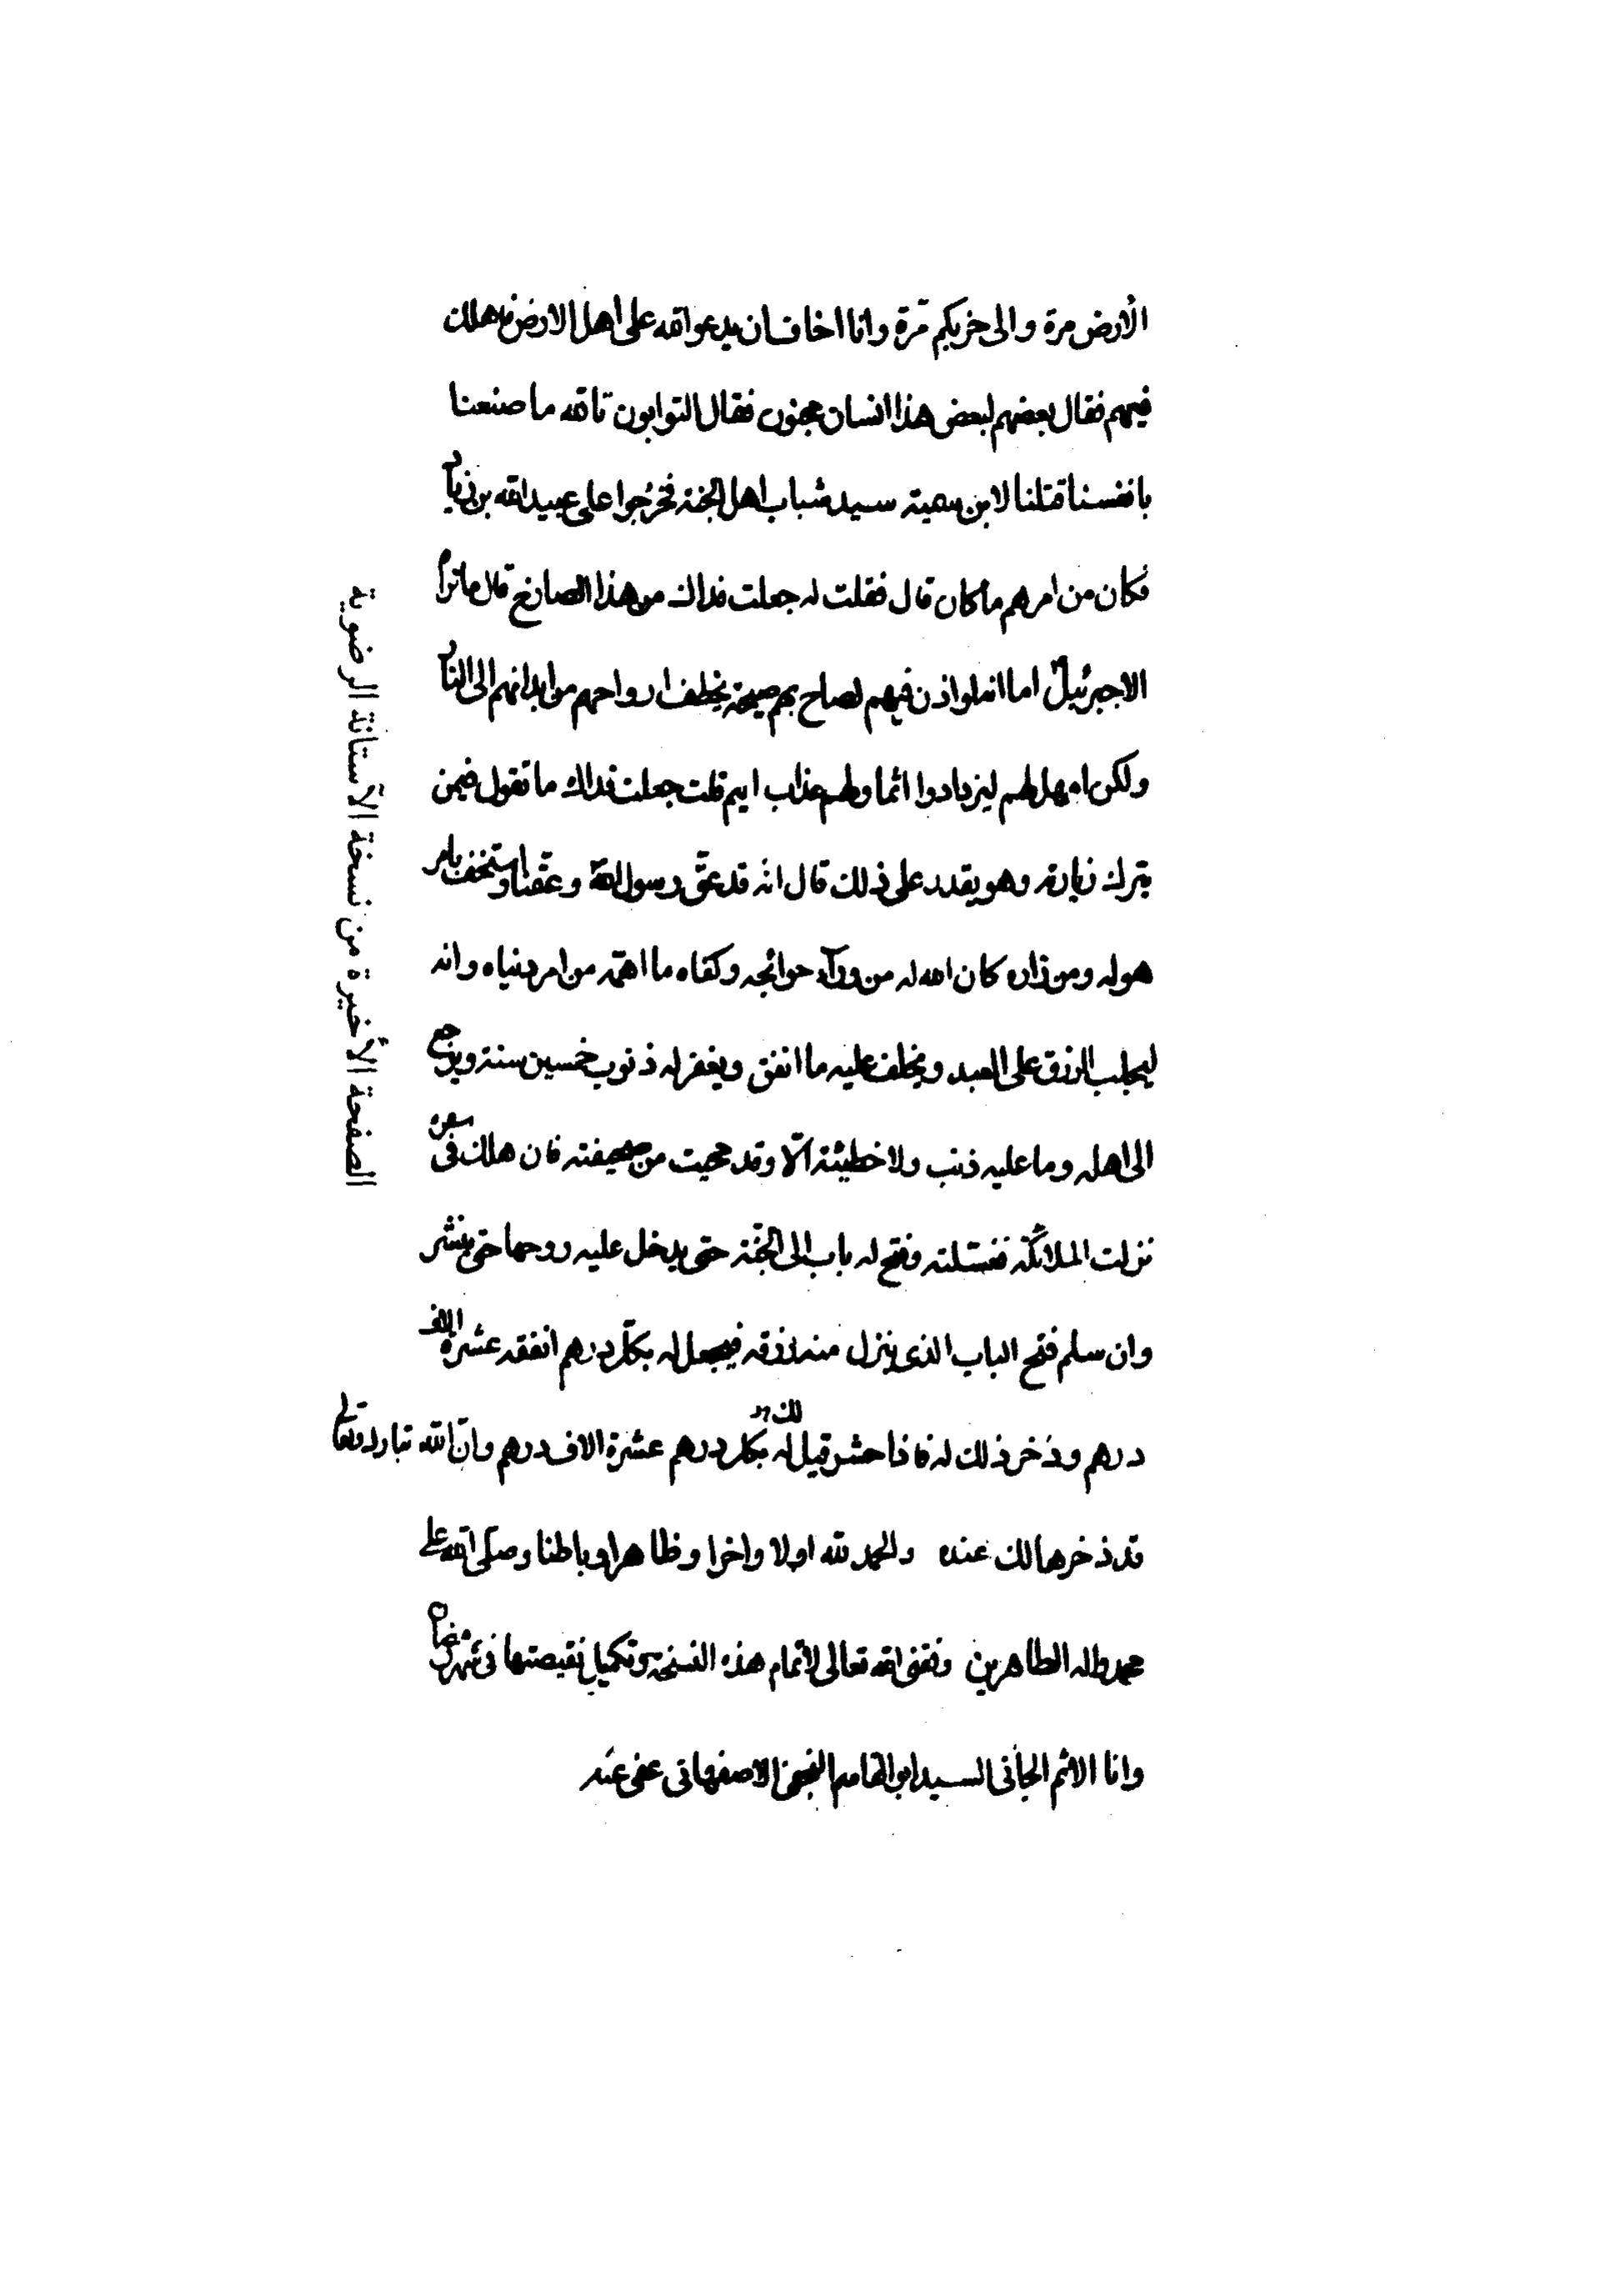 الارض مرة والى حزبكم مرة وانا اخاف ان يدعو الله على اهل الارض فاهلك
فيهم فقال بعضهم لبعض هذا انسان مجنون فقال التوابون تالله ما صنعنا
بانفسنا قتلنا لابن سمية سيد شباب اهل الجنة فخرجوا على عبيد الله بن زياد
فكان من امرهم ما كان قال فقلت له جعلت فداك من هذا الصارخ قال ما نراه
الا جبرئيل اما انه لو اذن فيهم لصاح بهم صيحة يخطف ارواحهم من ابدانهم الى النار
ولكن امهل لهم ليزدادوا اثما ولهم عذاب اليم قلت جعلت فداك ما تقول فيمن
يترك زيارته وهو يقدر على ذلك قال انه قد عق رسول الله وعقنا واستخف بامر
هو له ومن زاره كان الله له من وراء حوائجه وكفاه ما اهمه من امر دنياه وانه
ليجلب الرزق على العبد ويخلف عليه ما انفق ويغفر له ذنوب خمسين سنة ويرجع
الى اهله وما عليه ذنب ولا خطيئة الّا وقد محيت من صحيفته فان هلك فى سفره
نزلت الملائكة فغسلته وفتح له باب الى الجنة حتى يدخل عليه روحها حتى ينشر
وان سلم فتح الباب الذى ينزل منه رزقه فيجعل له بكل درهم انفقه عشرة الاف
درهم وذخر ذلك له فاذا حشر قيل له لك بكل درهم عشرة الاف درهم وان الله تبارك وتعالى
قد ذخرها لك عنده والحمد لله اولا واخرا وظاهرا وباطنا وصلى الله على
محمد واله الطاهرين وفقنى الله تعالى لاتمام هذه النسخة وتكميل نقيصتها فى شهر رمضان
وانا الاثم الجانى السيد ابو القاسم النجفى الاصفهانى عفى عنه
الصفحة الأخيرة من نسخة الآستانة الرضوية